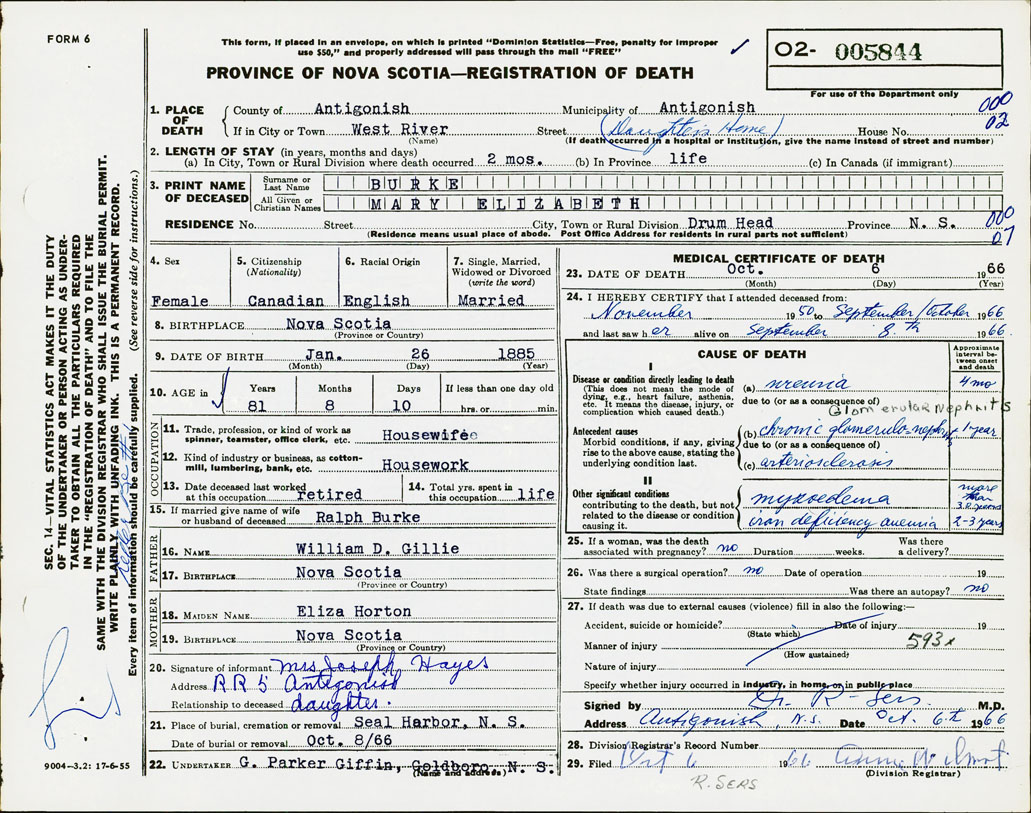 FORM 6
This form, if placed in an envelope, on which is printed "Dominion Statistics—Free, penalty for improper
use $50," and properly addressed will pass through the mail "FREE"
02- 005844
PROVINCE OF NOVA SCOTIA—REGISTRATION OF DEATH
For use of the Department only
1. PLACE OF DEATH
County of Antigonish Municipality of Antigonish 000
If in City or Town West River Street (Daughter's Home) House No. 02
(Name) (If death occurred in a hospital or institution, give the name instead of street and number)
2. LENGTH OF STAY (in years, months and days)
(a) In City, Town or Rural Division where death occurred 2 mos. (b) In Province life (c) In Canada (if immigrant)
3. PRINT NAME OF DECEASED
Surname or Last Name BURKE
All Given or Christian Names MARY ELIZABETH
RESIDENCE No. Street City, Town or Rural Division Drum Head Province N. S. 000
(Residence means usual place of abode. Post Office Address for residents in rural parts not sufficient) 07
4. Sex Female
5. Citizenship (Nationality) Canadian
6. Racial Origin English
7. Single, Married, Widowed or Divorced (write the word) Married
8. BIRTHPLACE Nova Scotia
(Province or Country)
9. DATE OF BIRTH Jan. 26 1885
(Month) (Day) (Year)
10. AGE in Years Months Days If less than one day old
81 8 10 hrs. or min.
OCCUPATION
11. Trade, profession, or kind of work as
spinner, teamster, office clerk, etc. Housewife
12. Kind of industry or business, as cotton-
mill, lumbering, bank, etc. Housework
13. Date deceased last worked
at this occupation retired
14. Total yrs. spent in
this occupation life
15. If married give name of wife
or husband of deceased Ralph Burke
FATHER
16. NAME William D. Gillie
17. BIRTHPLACE Nova Scotia
(Province or Country)
MOTHER
18. MAIDEN NAME Eliza Horton
19. BIRTHPLACE Nova Scotia
(Province or Country)
20. Signature of informant Mrs Joseph Hayes
Address RR 5 Antigonish
Relationship to deceased daughter.
21. Place of burial, cremation or removal Seal Harbor, N. S.
Date of burial or removal Oct. 8/66
22. UNDERTAKER G. Parker Giffin, Goldboro, N. S.
(Name and address)
MEDICAL CERTIFICATE OF DEATH
23. DATE OF DEATH Oct. 6 1966
(Month) (Day) (Year)
24. I HEREBY CERTIFY that I attended deceased from:
November 1950 to September/October 1966
and last saw her alive on September 8th 1966.
CAUSE OF DEATH
Approximate interval between onset and death
I
Disease or condition directly leading to death
(This does not mean the mode of
dying, e.g., heart failure, asthenia,
etc. It means the disease, injury, or
complication which caused death.)
(a) uremia 4 mo
due to (or as a consequence of)
Glomerular Nephritis
Antecedent causes
Morbid conditions, if any, giving
rise to the above cause, stating the
underlying condition last.
(b) chronic glomerulo nephritis 1 year
due to (or as a consequence of)
(c) arteriosclerosis
II
Other significant conditions
contributing to the death, but not
related to the disease or condition
causing it.
myxoedema more than
iron deficiency anemia 2-3 years
25. If a woman, was the death
associated with pregnancy? no Duration weeks. Was there
a delivery?
26. Was there a surgical operation? no Date of operation 19
State findings Was there an autopsy? no
27. If death was due to external causes (violence) fill in also the following:—
Accident, suicide or homicide? Date of injury 19
(State which)
Manner of injury 593x
(How sustained)
Nature of injury
Specify whether injury occurred in industry, in home, or in public place
Signed by Dr. R. Sers M.D.
Address Antigonish, N.S. Date Oct. 6th 1966
28. Division Registrar's Record Number
29. Filed Oct 6 1966
(Division Registrar)
R. SERS
SEC. 14—VITAL STATISTICS ACT MAKES IT THE DUTY
OF THE UNDERTAKER OR PERSON ACTING AS UNDER-
TAKER TO OBTAIN ALL THE PARTICULARS REQUIRED
IN THE "REGISTRATION OF DEATH" AND TO FILE THE
SAME WITH THE DIVISION REGISTRAR WHO SHALL ISSUE THE BURIAL PERMIT.
WRITE PLAINLY WITH UNFADING INK. THIS IS A PERMANENT RECORD.
Every item of information should be carefully supplied. (See reverse side for instructions.)
9004—3.2: 17-6-55